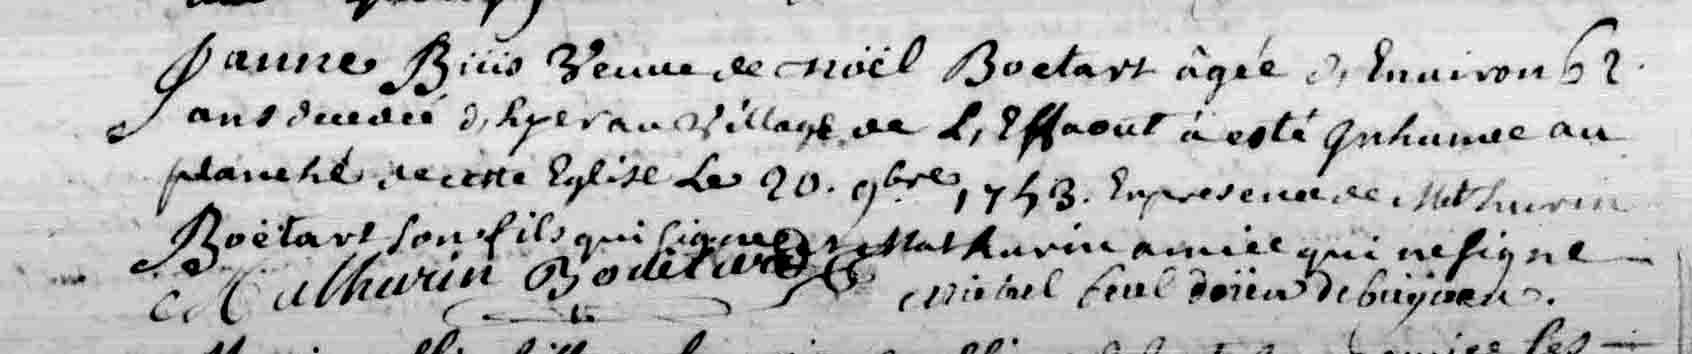 Janne Biris Veuve de noël Boetart âgée d, Enuiron 62
ans décédée d,hyer au Village de L,Effaout à esté Inhumée au
planché de cette Eglise Le 20. 9bre 1753. En presence de Mathurin
Boëtart son fils qui signe & Mathurin amice qui ne signe
Mathurin Boëtard Michel doïen de